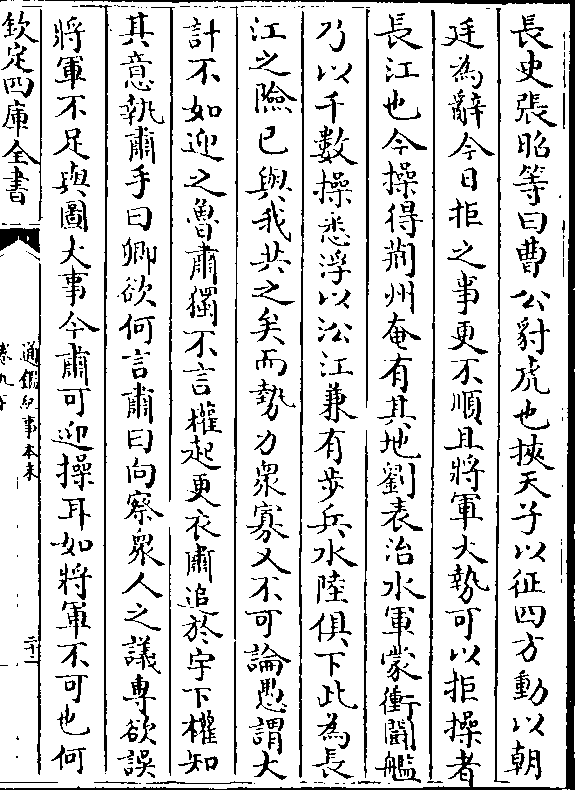 長史張昭等曰曹公豺虎也挾天子以征四方動以朝
廷為辭今日拒之事更不順且將軍大勢可以拒操者
長江也今操得荊州奄有其地劉表治水軍蒙衝鬭艦
乃以千數操悉浮以沿江兼有步兵水陸俱下此為長
江之險已與我共之矣而勢力衆寡又不可論愚謂大
計不如迎之魯肅獨不言權起更衣肅追於宇下權知
其意執肅手曰卿欲何言肅曰向察衆人之議專欲誤
將軍不足與圖大事今肅可迎操耳如將軍不可也何
欽定四庫全書
通鑑紀事本末
卷九下
三十二